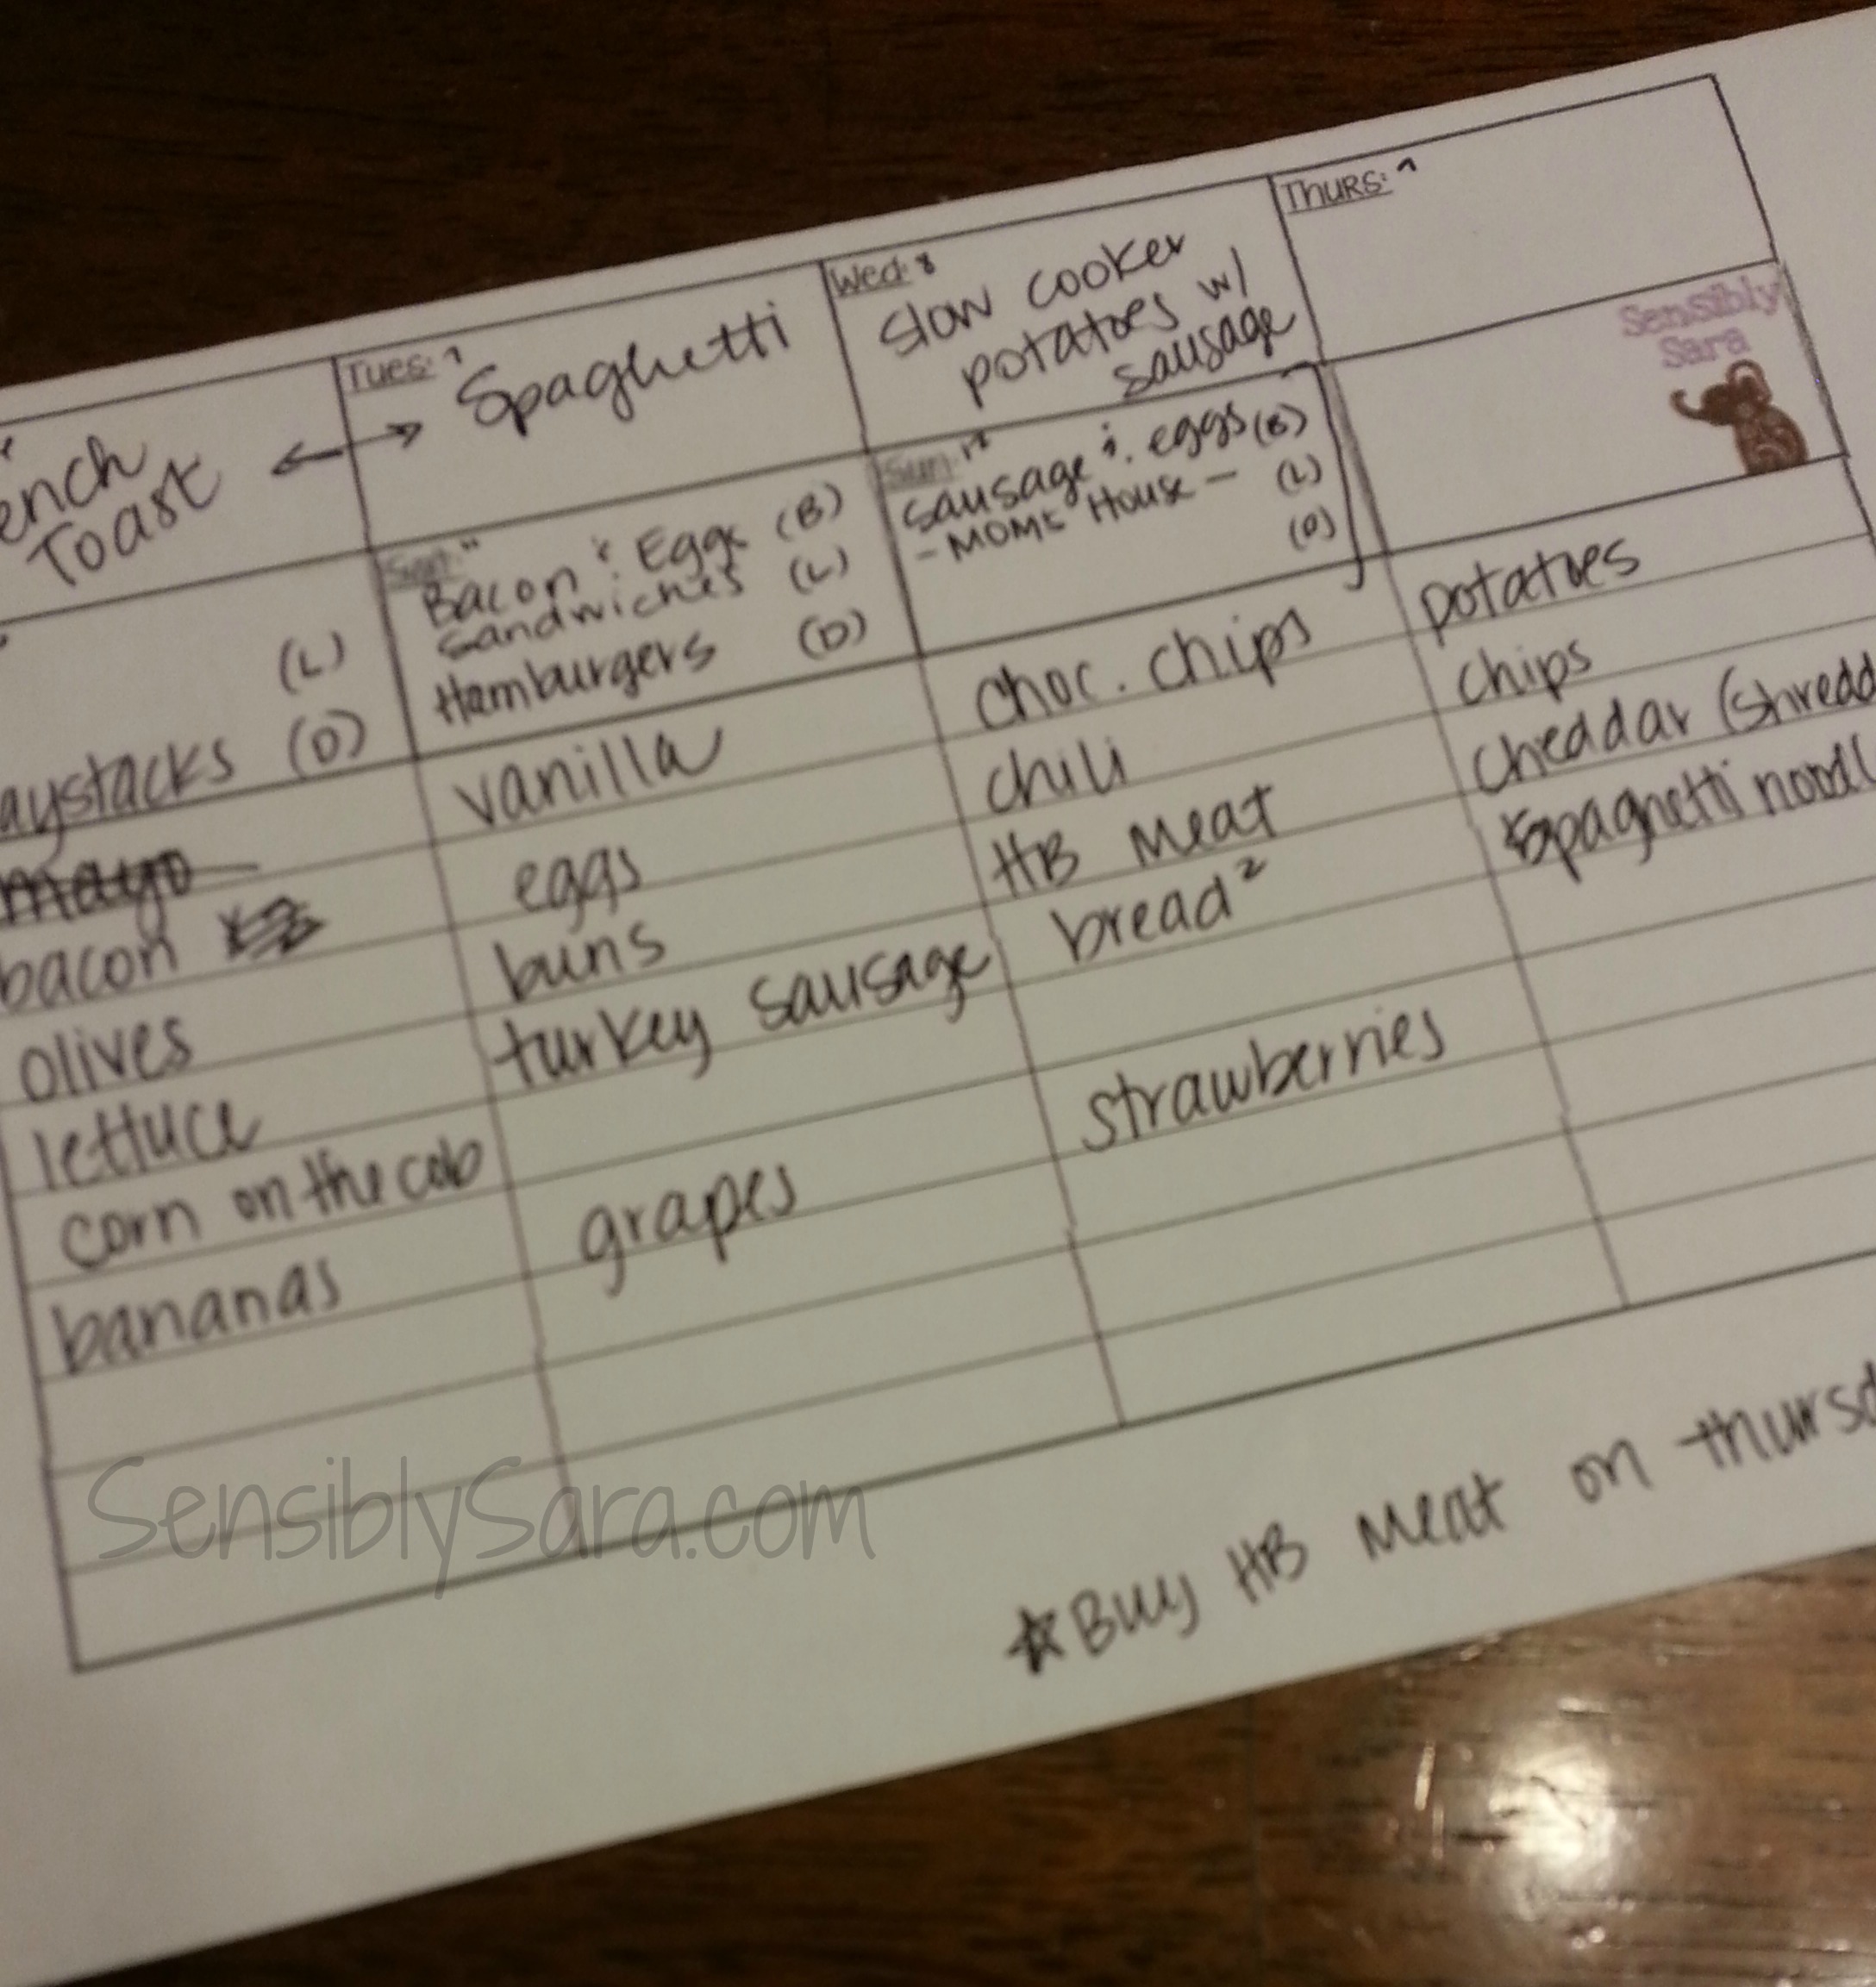 Thurs: 9
Wed: 8
slow cooker
potatoes w/
sausage
Tues: 7
Spaghetti
ench
Toast
Sensibly
Sara
sausage & eggs (B)
- MOM's House - (L)
(D)
Bacon & Eggs (B)
sandwiches (L)
Hamburgers (D)
(L)
aystacks (D)
mayo
vanilla
choc. chips
potatoes
bacon
eggs
chili
chips
olives
buns
HB Meat
cheddar (shredd
lettuce
turkey sausage
bread 2
spaghetti noodl
corn on the cob
bananas
grapes
strawberries
SensiblySara.com
☆Buy HB Meat on thursd